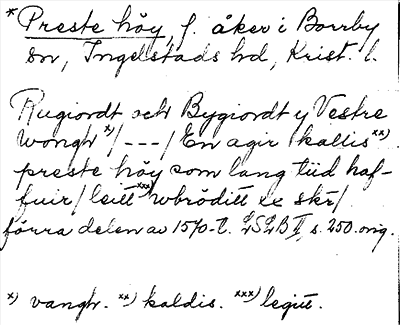 * Preste höy, f. åker i Borrby
sn, Ingelstads hd, Krist. l.
Rugiordt och Bygiordt y Vestre
wongh x) /---/ En agir kallis xx)
preste höy som lang tiid haf-
fuir / leitt xxx) wbröditt etc skr/
förra delen av 1570-t. LSLB II, s. 250. orig.
x) vangh. xx) kaldis. xxx) legitt.